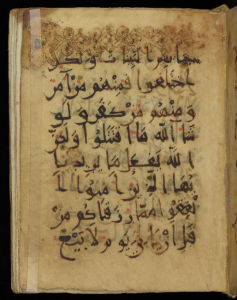 جاتهم البينات ولكن
اختلفوا فمنهم من امن
ومنهم من كفر ولو
شا الله ما اقتتلوا ولكن
الله يفعل ما يريد يا
ايها الذين امنوا ا
نفقوا مما رزقناكم من
قبل ان ياتي يوم لا بيع